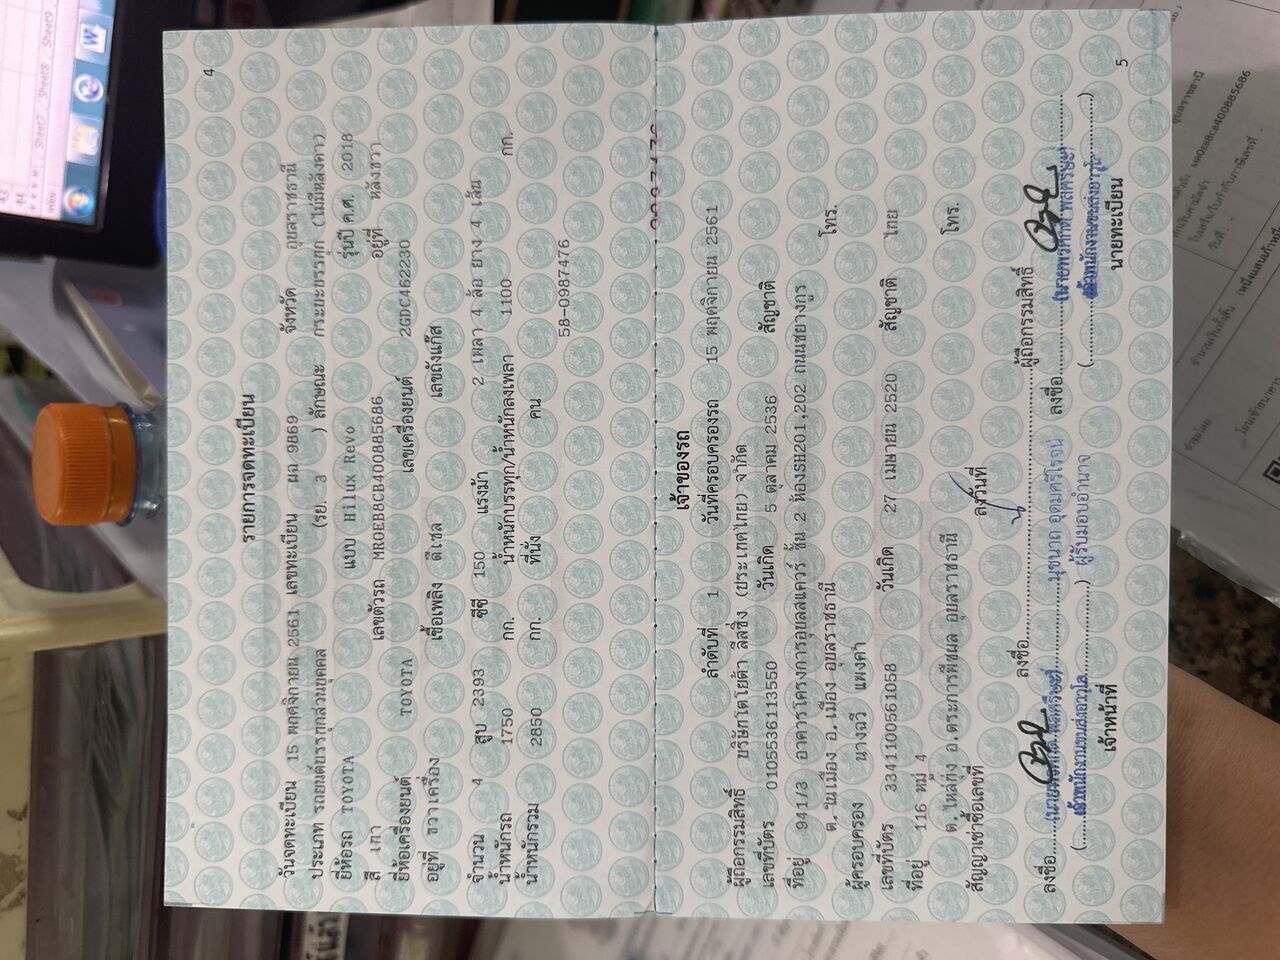 4
รายการจดทะเบียน
วันจดทะเบียน 15 พฤศจิกายน 2561 เลขทะเบียน ผฉ 9869 จังหวัด อุบลราชธานี
ประเภท รถยนต์บรรทุกส่วนบุคคล (รย. 3 ) ลักษณะ กระบะบรรทุก (ไม่มีหลังคา)
ยี่ห้อรถ TOYOTA แบบ Hilux Revo รุ่นปี ค.ศ. 2018
สี เทา เลขตัวรถ MR0EB8CB400885686 อยู่ที่ หลังขวา
ยี่ห้อเครื่องยนต์ TOYOTA เลขเครื่องยนต์ 2GDC462230
อยู่ที่ ขวาเครื่อง เชื้อเพลิง ดีเซล เลขถังแก๊ส
จำนวน 4 สูบ 2393 ซีซี 150 แรงม้า 2 เพลา 4 ล้อ ยาง 4 เส้น
น้ำหนักรถ 1750 กก. น้ำหนักบรรทุก/น้ำหนักลงเพลา 1100 กก.
น้ำหนักรวม 2850 กก. ที่นั่ง คน
58-0987476
เจ้าของรถ
ลำดับที่ 1 วันที่ครอบครองรถ 15 พฤศจิกายน 2561
ผู้ถือกรรมสิทธิ์ บริษัทโตโยต้า ลีสซิ่ง (ประเทศไทย) จำกัด
เลขที่บัตร 0105536113550 วันเกิด 5 ตุลาคม 2536 สัญชาติ
ที่อยู่ 941/3 อาคารโครงการอุบลสแควร์ ชั้น 2 ห้องSH201,202 ถนนชยางกูร
ต.ในเมือง อ.เมือง อุบลราชธานี โทร.
ผู้ครอบครอง นางฉวี แพงคำ
เลขที่บัตร 3341100561058 วันเกิด 27 เมษายน 2520 สัญชาติ ไทย
ที่อยู่ 116 หมู่ 4
ต.ไหล่ทุ่ง อ.ตระการพืชผล อุบลราชธานี โทร.
สัญญาเช่าซื้อเลขที่ ลงวันที่
ลงชื่อ ผู้ถือกรรมสิทธิ์
ลงชื่อ นุชนาถ ผู้รับมอบอำนาจ
ลงชื่อ
เจ้าพนักงานขนส่งอาวุโส
เจ้าหน้าที่
ลงชื่อ
นายทะเบียน
5
Sheet7 Sheet8 Sheet9
W
MR0EB8CB400885686